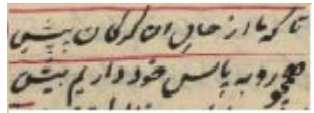 تا که ما از حال ان کرکان پیش
همچو روبه پاس خود داریم بیش